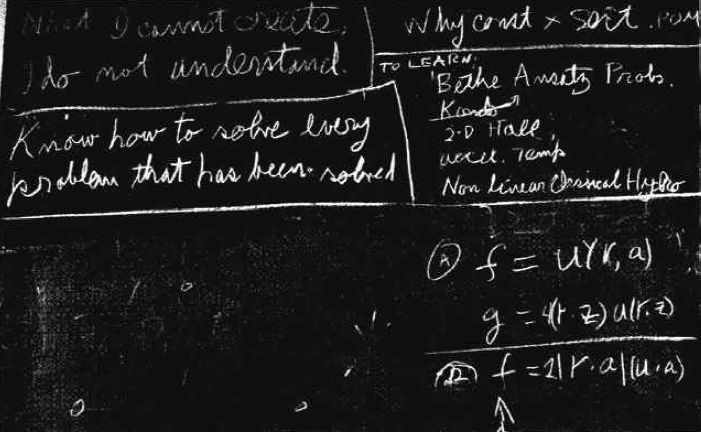 What I cannot create,
I do not understand.
Know how to solve every
problem that has been solved
Why const × sort .
TO LEARN:
Bethe Ansatz Probs.
Kondo
2-D Hall
accel. Temp
Non Linear Classical Hydro
(A) f = u(r, a)
g = 4(r·z) u(r.z)
f = 2|r·a|(u·a)